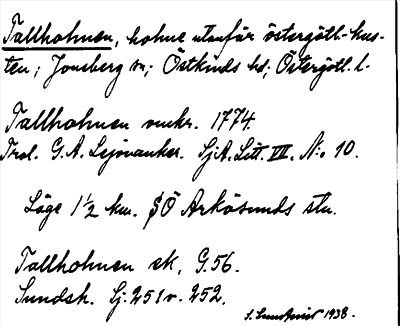 Tallholmen, holme utanför östergötl.-kus-
ten; Jonsberg sn; Östkinds hd; Östergötl. l.
Tallholmen omkr. 1774.
Trol. G.A. Lejonanker. SjA. Litt. VII. N:o 10.
Läge 1 1/2 km. SÖ Arkösunds stn.
Tallholmen ek, G.56.
Sundsk. Sj. 251 v. 252.
1938.